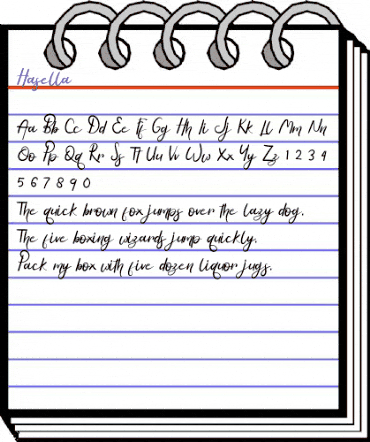 Hasella
Aa Bb Cc Dd Ee Ff Gg Hh Ii Jj Kk Ll Mm Nn
Oo Pp Qq Rr Ss Tt Uu Vv Ww Xx Yy Zz 1 2 3 4
5 6 7 8 9 0
The quick brown fox jumps over the lazy dog.
The five boxing wizards jump quickly.
Pack my box with five dozen liquor jugs.